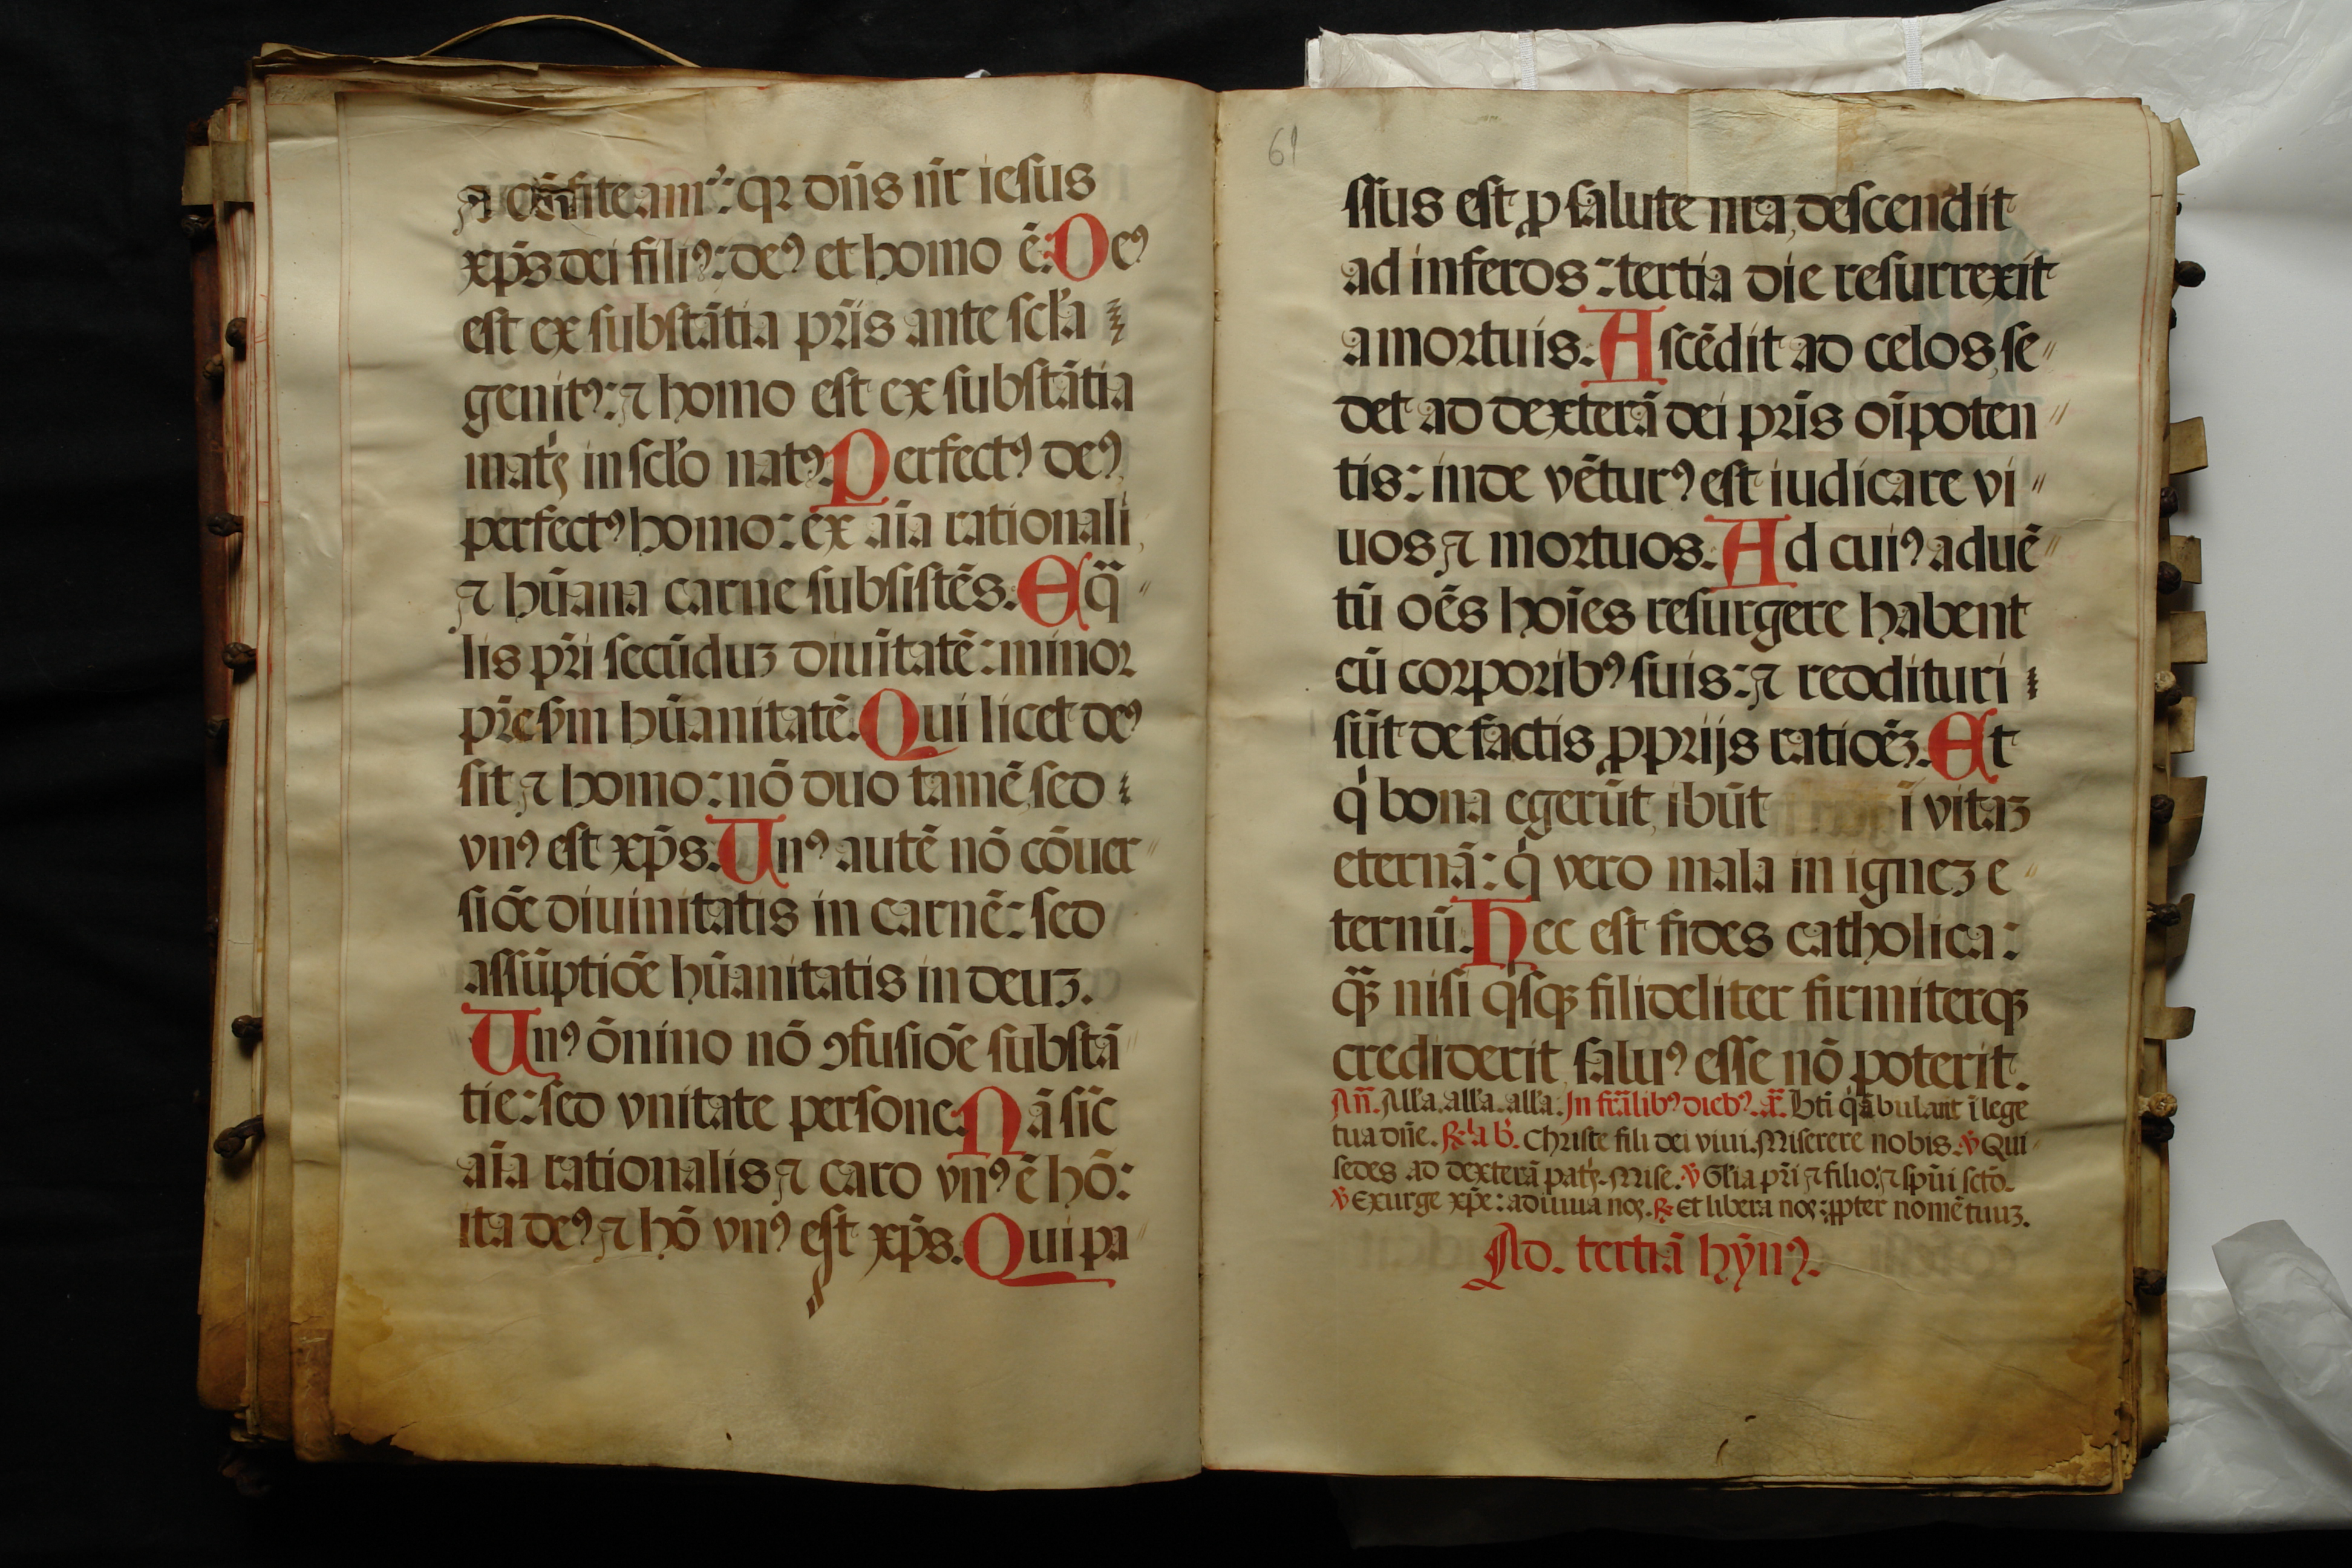 ⁊ cōfiteamrˀ: qꝛ dn̄s nr̄ iesus
xp̄s dei filiꝰ: deꝰ et homo ē: Deꝰ
est ex substātia pr̄is ante scl̄a
genitꝰ: ⁊ homo est ex substātia
mat͛s in scl̄o natꝰ. Perfectꝰ deꝰ
perfectꝰ homo: ex aīa rationali
⁊ hūana carne subsistēs. Eq̄
lis pr̄i secūduꝫ diuītatē: minor
pr̄e ẜm hūanitatē. Qui licet deꝰ
sit ⁊ homo: nō duo tamē, sed
vnꝰ est xp̄s. Unꝰ autē nō cōuer
siōe diuinitatis in carnē: sed
assūptiōe hūanitatis in deuꝫ.
Unꝰ ōnino nō ꝯfusiōe substā
tie: sed vnitate persone. Nā sīc
aīa rationalis ⁊ caro vnꝰ ē hō:
ita deꝰ ⁊ hō vnꝰ est xp̄s. Qui pa
61
ssus est ꝓ salute nr̄a, descendit
ad inferos: tertia die resurrexit
a mortuis. Ascēdit ad celos, se
det ad dexterā dei pr̄is oīpoten
tis: inde vēturꝰ est iudicare vi
uos ⁊ mortuos. Ad cuiꝰ aduē
tū oēs hoīes resurgere habent
cū corporibꝰ suis: ⁊ reddituri
sūt de factis ꝓprijs ratiōeꝫ. Et
qͥ bona egerūt, ibūt ī vitaꝫ
eternā: qͥ vero mala in igneꝫ e
ternū. Hec est fides catholica:
qᷓꝫ nisi qͥsqꝫ filideliter firmiterqꝫ
crediderit, saluꝰ esse nō poterit.
Añ. All'a. all'a. all'a. In fr̄alibꝰ diebꝰ. an̄. Bt̄i qͥ ābulant ī lege
tua dn̄e. ℟ la b'. Christe fili dei viui. Miserere nobis. ℣ Qui
sedes ad dexterā pat͛s. Mise. ℣ Gl'ia pr̄i ⁊ filio: ⁊ sp̄ui sctō.
℣ Exurge xp̄e: adiuua nos. ℟ Et libera nos: ꝓpter nomē tuuꝫ.
Ad. tertiā hȳnꝰ.